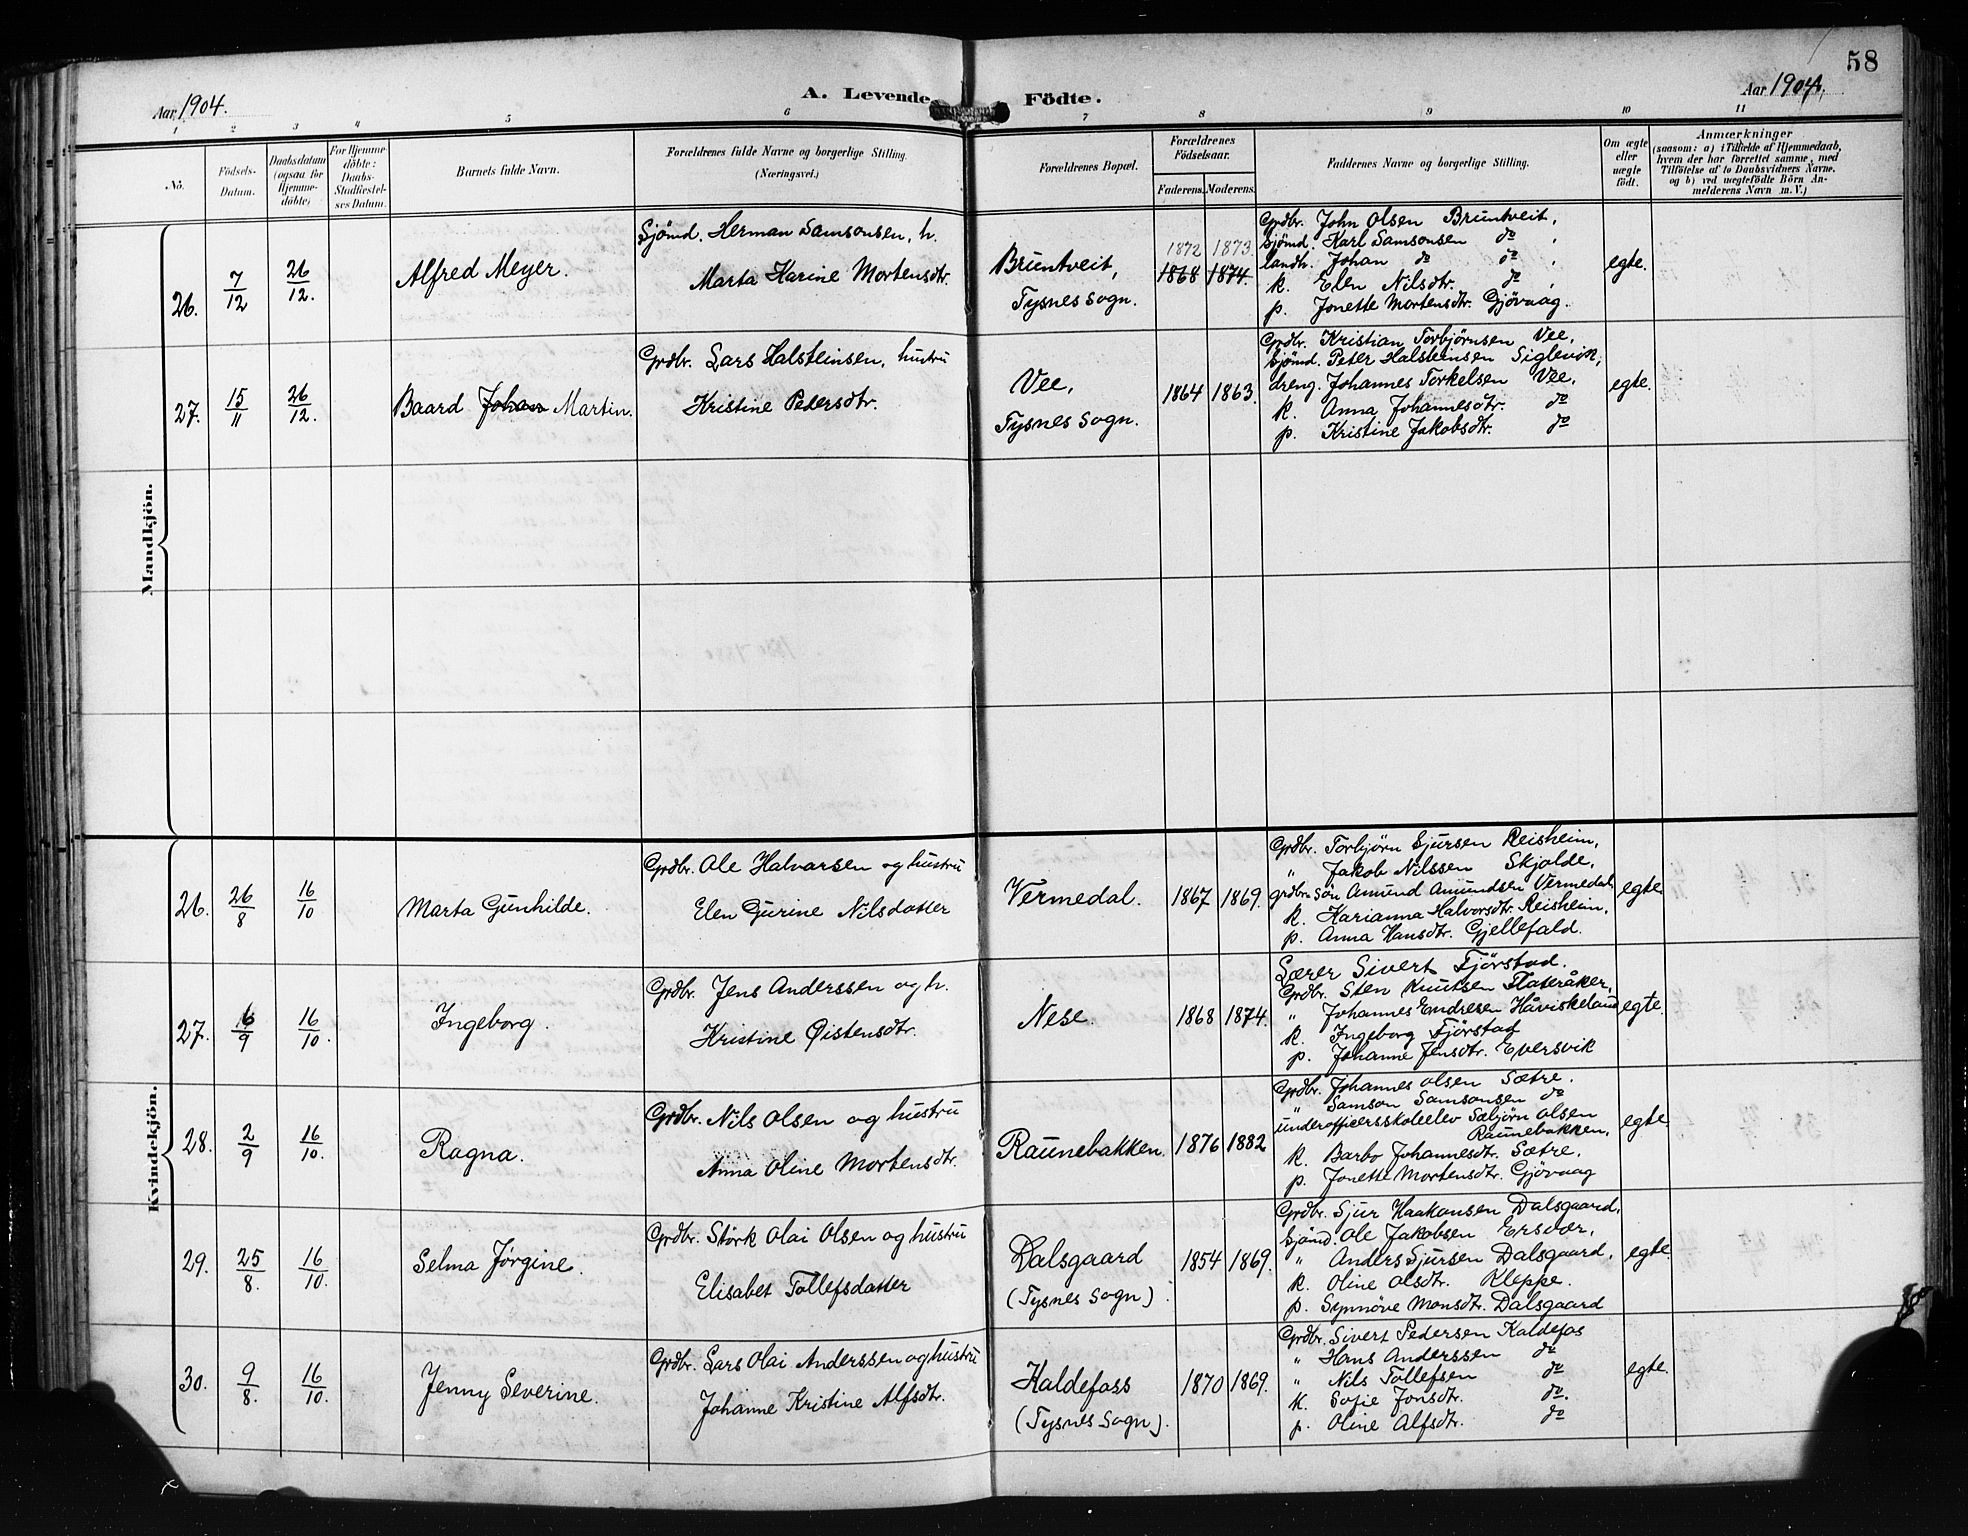 58
Aar 1904.
A. Levende Födte.
Aar 1904.
1 2 3 4 5 6 7 8 9 10 11
No.
Födsels-Datum.
Daabsdatum (ogsaa for Hjemme-döbte)
For Hjemme-döbte: Daabs-Stadfæstel-ses Datum.
Barnets fulde Navn.
Forældrenes fulde Navne og borgerlige Stilling. (Næringsvei.)
Forældrenes Bopæl.
Forældrenes Födselsaar.
Faderens. Moderens.
Faddernes Navne og borgerlige Stilling.
Om ægte eller uægte födt.
Anmærkninger
(saasom: a) i Tilfælde af Hjemmedaab, hvem der har forrettet samme, med Tilföielse af to Daabsvidners Navne, og b) ved uægtefödte Börn Anmelderens Navn m. V.)
Mandkjön.
26. 7/12 26/12. Alfred Meyer.
Sjömd. Herman Samsonsen, h.
Marta Karine Mortensdtr.
Bruntveit,
Tysnes sogn.
1872 1873.
1868 1874.
Grdbr. John Olsen Bruntveit,
sjömd. Karl Samsonsen do,
landh. Johan do do,
k. Elen Nilsdtr. do,
p. Jonette Mortensdtr. Gjövaag.
egte.
27. 15/11 26/12. Baard Johan Martin.
Grdbr. Lars Halsteinsen, hustru
Kristine Pedersdtr.
Vee,
Tysnes sogn.
1864 1863.
Grdbr. Kristian Torbjørnsen Vee,
sjömd. Peter Halsteinsen Siglevik,
dreng. Johannes Torkelsen Vee,
k. Anna Johannesdtr. do
p. Kristine Jakobsdtr. do
egte.
Kvindekjön.
26. 26/8 16/10 Marta Gunhilde.
Grdbr. Ole Halvorsen og hustru
Elen Gurine Nilsdatter
Vermedal.
1867 1869.
Grdbr. Torbjørn Sjursen Reisheim,
" Jakob Nilssen Skjolde,
grdbr. søn Amund Amundsen Vermedal,
k. Karianna Halvorsdtr. Reisheim,
p. Anna Hansdtr. Gjellefald.
egte
27. 6/9 16/10. Ingeborg.
Grdbr. Jens Anderssen og h.
Kristine Øistensdtr.
Nese.
1868 1874.
Lærer Sivert Tjörstad.
Grdbr. Sten Knutsen Flateråker,
" Johannes Endresen Håviskeland
k. Ingeborg Tjörstad
p. Johanne Jensdtr. Eversvik
egte.
28. 2/9 16/10. Ragna.
Grdbr. Nils Olsen og hustru
Anna Oline Mortensdtr.
Raunebakken.
1876 1882
Grdbr. Johannes Olsen Sætre.
" Samson Samsonsen do
underofficersskoleelev Sæbjørn Olsen
Raunebakken,
k. Barbo Johannesdtr. Sætre,
p. Jonette Mortensdtr. Gjövaag
egte
29. 25/8. 16/10. Selma Jørgine.
Grdbr. Störk Olai Olsen og hustru
Elisabet Tollefsdatter
Dalsgaard
(Tysnes sogn).
1854 1869.
Grdbr. Sjur Haakonsen Dalsgaard,
sjömd. Ole Jakobsen Ersvær,
" Anders Sjursen Dalsgaard,
k. Oline Olsdtr. Kleppe.
p. Synnöve Monsdtr. Dalsgaard
egte.
30. 9/8. 16/10. Jenny Severine.
Grdbr. Lars Olai Anderssen og hustru
Johanne Kristine Alfsdtr.
Kaldefoss
(Tysnes sogn).
1870 1869.
Grdbr. Sivert Pedersen Kaldefos
" Hans Anderssen do
" Nils Tollefsen do
k. Sofie Jonsdtr. do.
p. Oline Alfsdtr. do
egte.